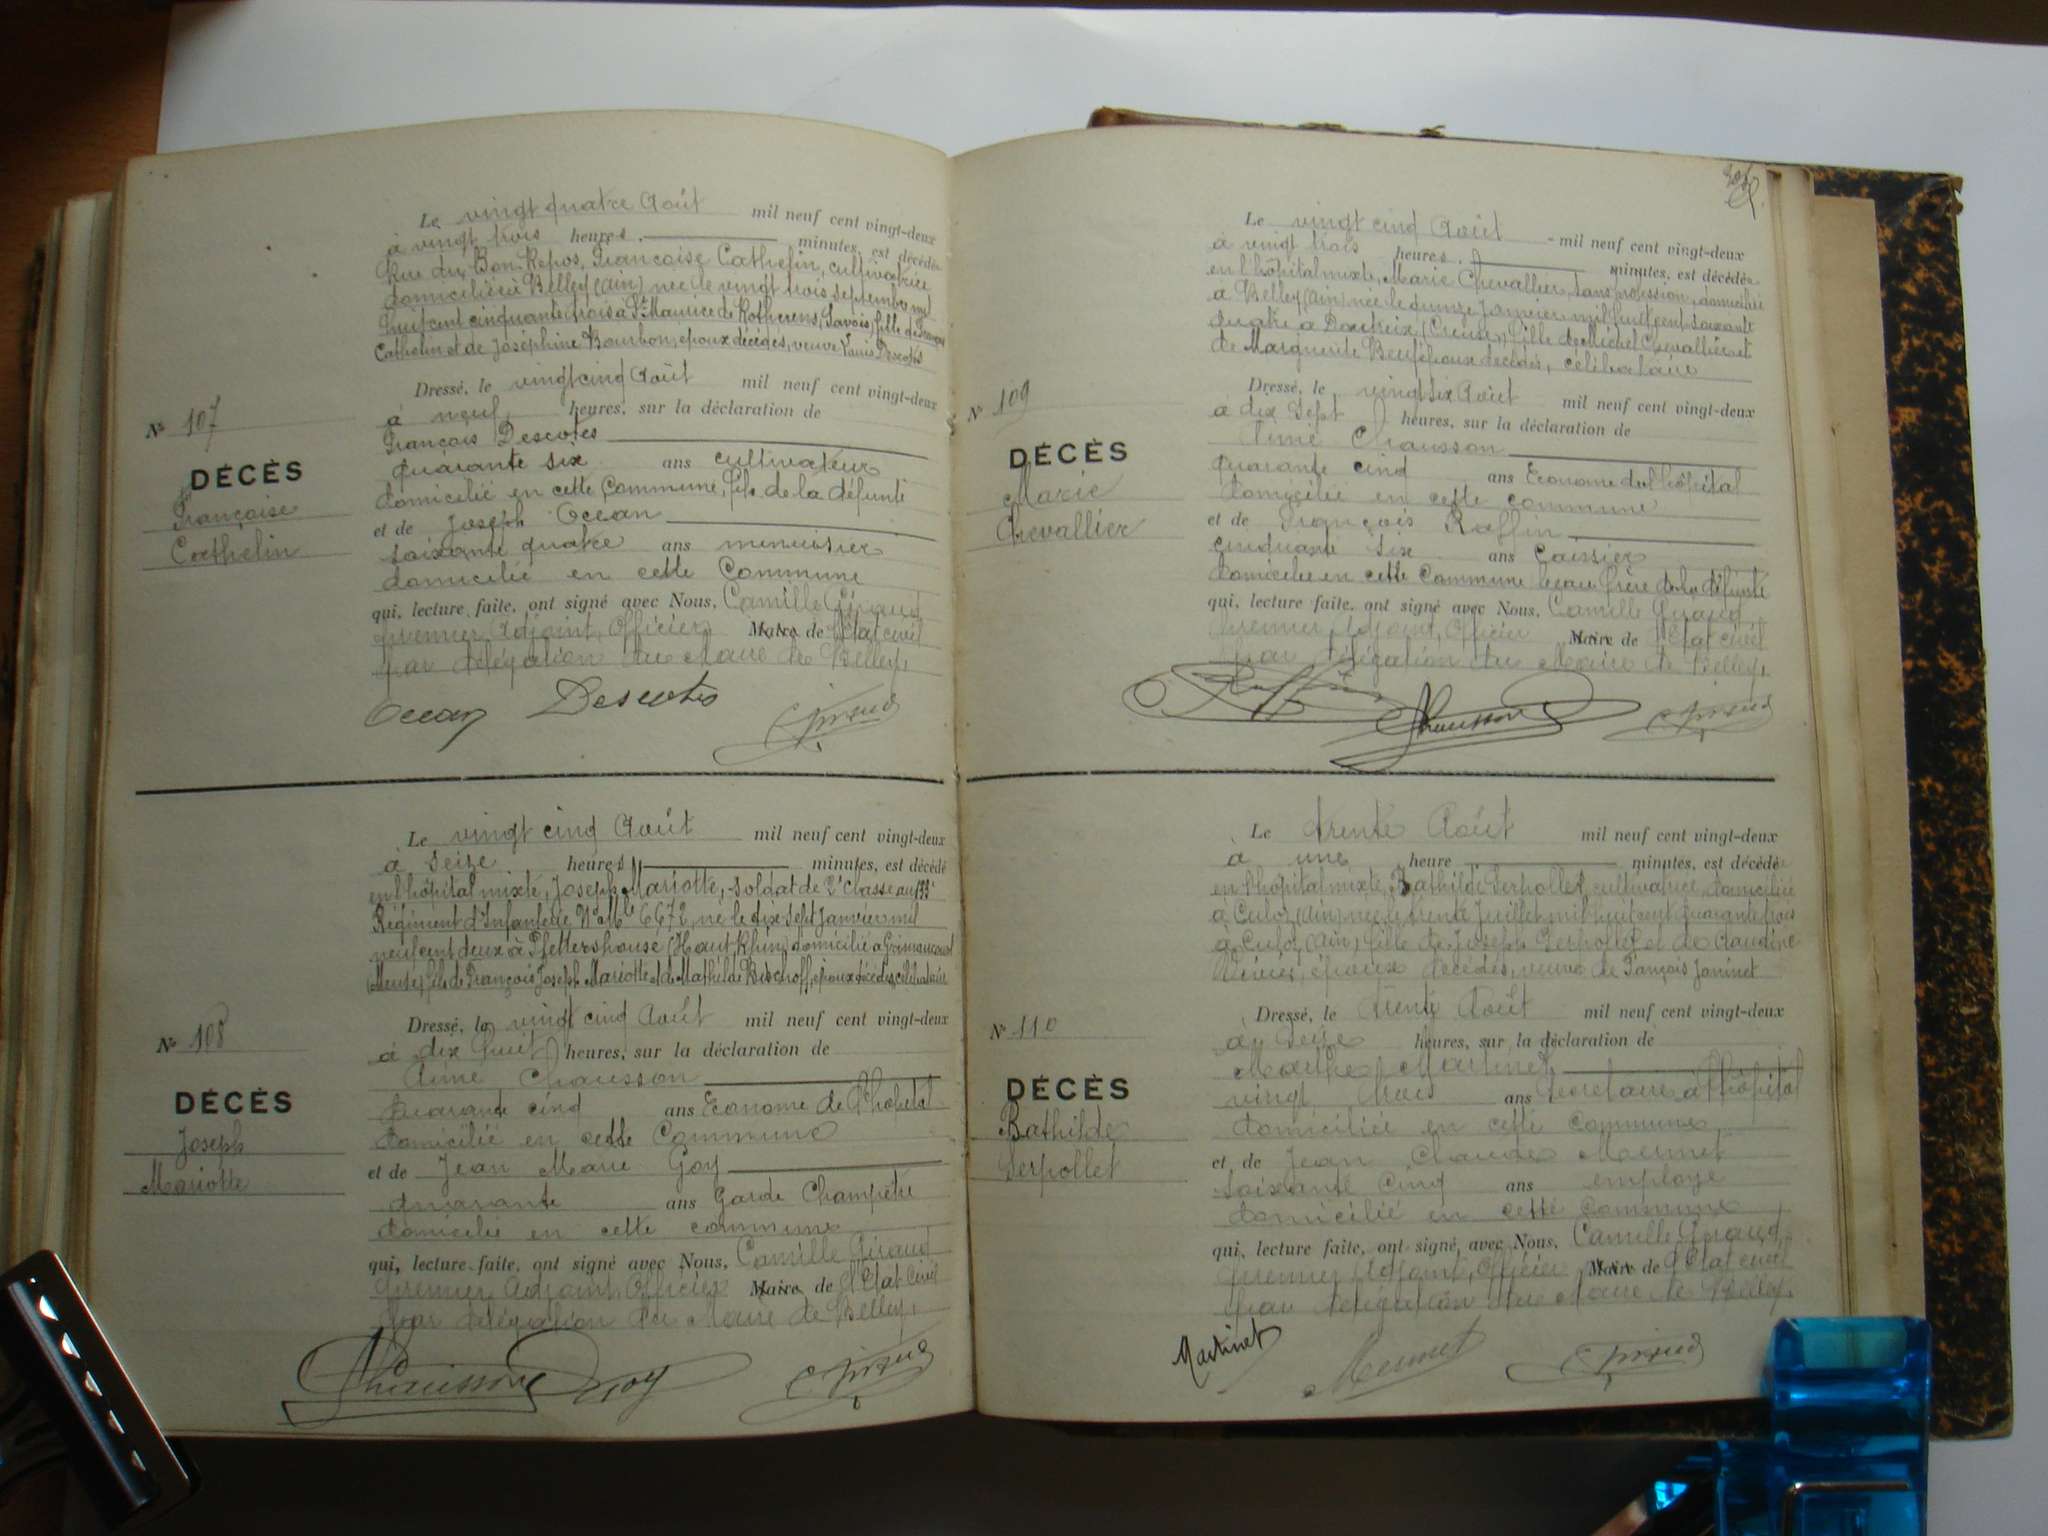 Le vingt quatre Août mil neuf cent vingt-deux
à vingt trois heures minutes, est décédée
Rue du Bon Repos, Françoise Cathelin, cultivatrice
domiciliée à Belley (Ain) née le vingt trois septembre mil
huit cent cinquante trois à St Maurice de Rotherens, (Savoie) fille de François
Cathelin et de Joséphine Bourbon, époux décédés, veuve Louis Descotes
Dressé, le vingt cinq Août mil neuf cent vingt-deux
à neuf heures, sur la déclaration de
François Descotes
quarante six ans cultivateur
domicilié en cette Commune, fils de la défunte
et de Joseph Océan
soixante quatre ans menuisier
domicilié en cette Commune
qui, lecture faite, ont signé avec Nous, Camille Giraud
premier Adjoint, Officier Maire de l'Etat civil
par délégation du Maire de Belley,
Ocean Descotes C Giraud
N° 107
DÉCÈS
Françoise
Cathelin
Le vingt cinq Août mil neuf cent vingt-deux
à seize heures minutes, est décédé
en l'hôpital mixte, Joseph Mariotte, soldat de 2e Classe au 133e
Régiment d'Infanterie N° Mle 6672, né le dix sept Janvier mil
neuf cent deux à Pfettershouse (Haut Rhin) domicilié à Grimaucourt
(Meuse) fils de François Joseph Mariotte et de Mathilde Bischoff, époux décédés, célibataire
Dressé, le vingt cinq Août mil neuf cent vingt-deux
à dix huit heures, sur la déclaration de
Aimé Chausson
quarante cinq ans Econome de l'hôpital
domicilié en cette Commune
et de Jean Marie Goy
quarante ans Garde Champêtre
domicilié en cette commune
qui, lecture faite, ont signé avec Nous, Camille Giraud
premier Adjoint, Officier Maire de l'Etat Civil
par délégation du Maire de Belley,
Chausson Goy C Giraud
N° 108
DÉCÈS
Joseph
Mariotte
Le vingt cinq Août mil neuf cent vingt-deux
à vingt trois heures minutes, est décédée
en l'hôpital mixte, Marie Chevallier, sans profession, domiciliée
à Belley (Ain) née le Janvier mil huit cent soixante
quatre à (Creuse) fille de Michel Chevallier et
de Marguerite époux décédés, célibataire
Dressé, le vingt six Août mil neuf cent vingt-deux
à dix sept heures, sur la déclaration de
Aimé Chausson
quarante cinq ans Econome de l'hôpital
domicilié en cette commune
et de François Raffin
cinquante six ans Caissier
domicilié en cette Commune beau frère de la défunte
qui, lecture faite, ont signé avec Nous, Camille Giraud
premier Adjoint, Officier Maire de l'Etat civil
par délégation du Maire de Belley,
Raffin Chausson C Giraud
N° 109
DÉCÈS
Marie
Chevallier
Le trente Août mil neuf cent vingt-deux
à une heure minutes, est décédée
en l'hôpital mixte, Bathilde Serpollet, cultivatrice, domiciliée
à Culoz (Ain) née le trente Juillet mil huit cent quarante trois
à Culoz (Ain) fille de Joseph Serpollet et de Claudine
époux décédés, veuve de François Janinet
Dressé, le trente Août mil neuf cent vingt-deux
à seize heures, sur la déclaration de
Marthe Martinet
vingt trois ans Secrétaire à l'hôpital
domiciliée en cette commune
et de Jean Claude Mermet
soixante cinq ans employé
domicilié en cette Commune
qui, lecture faite, ont signé avec Nous, Camille Giraud,
premier Adjoint, Officier Maire de l'Etat civil
par délégation du Maire de Belley,
Martinet Mermet C Giraud
N° 110
DÉCÈS
Bathilde
Serpollet